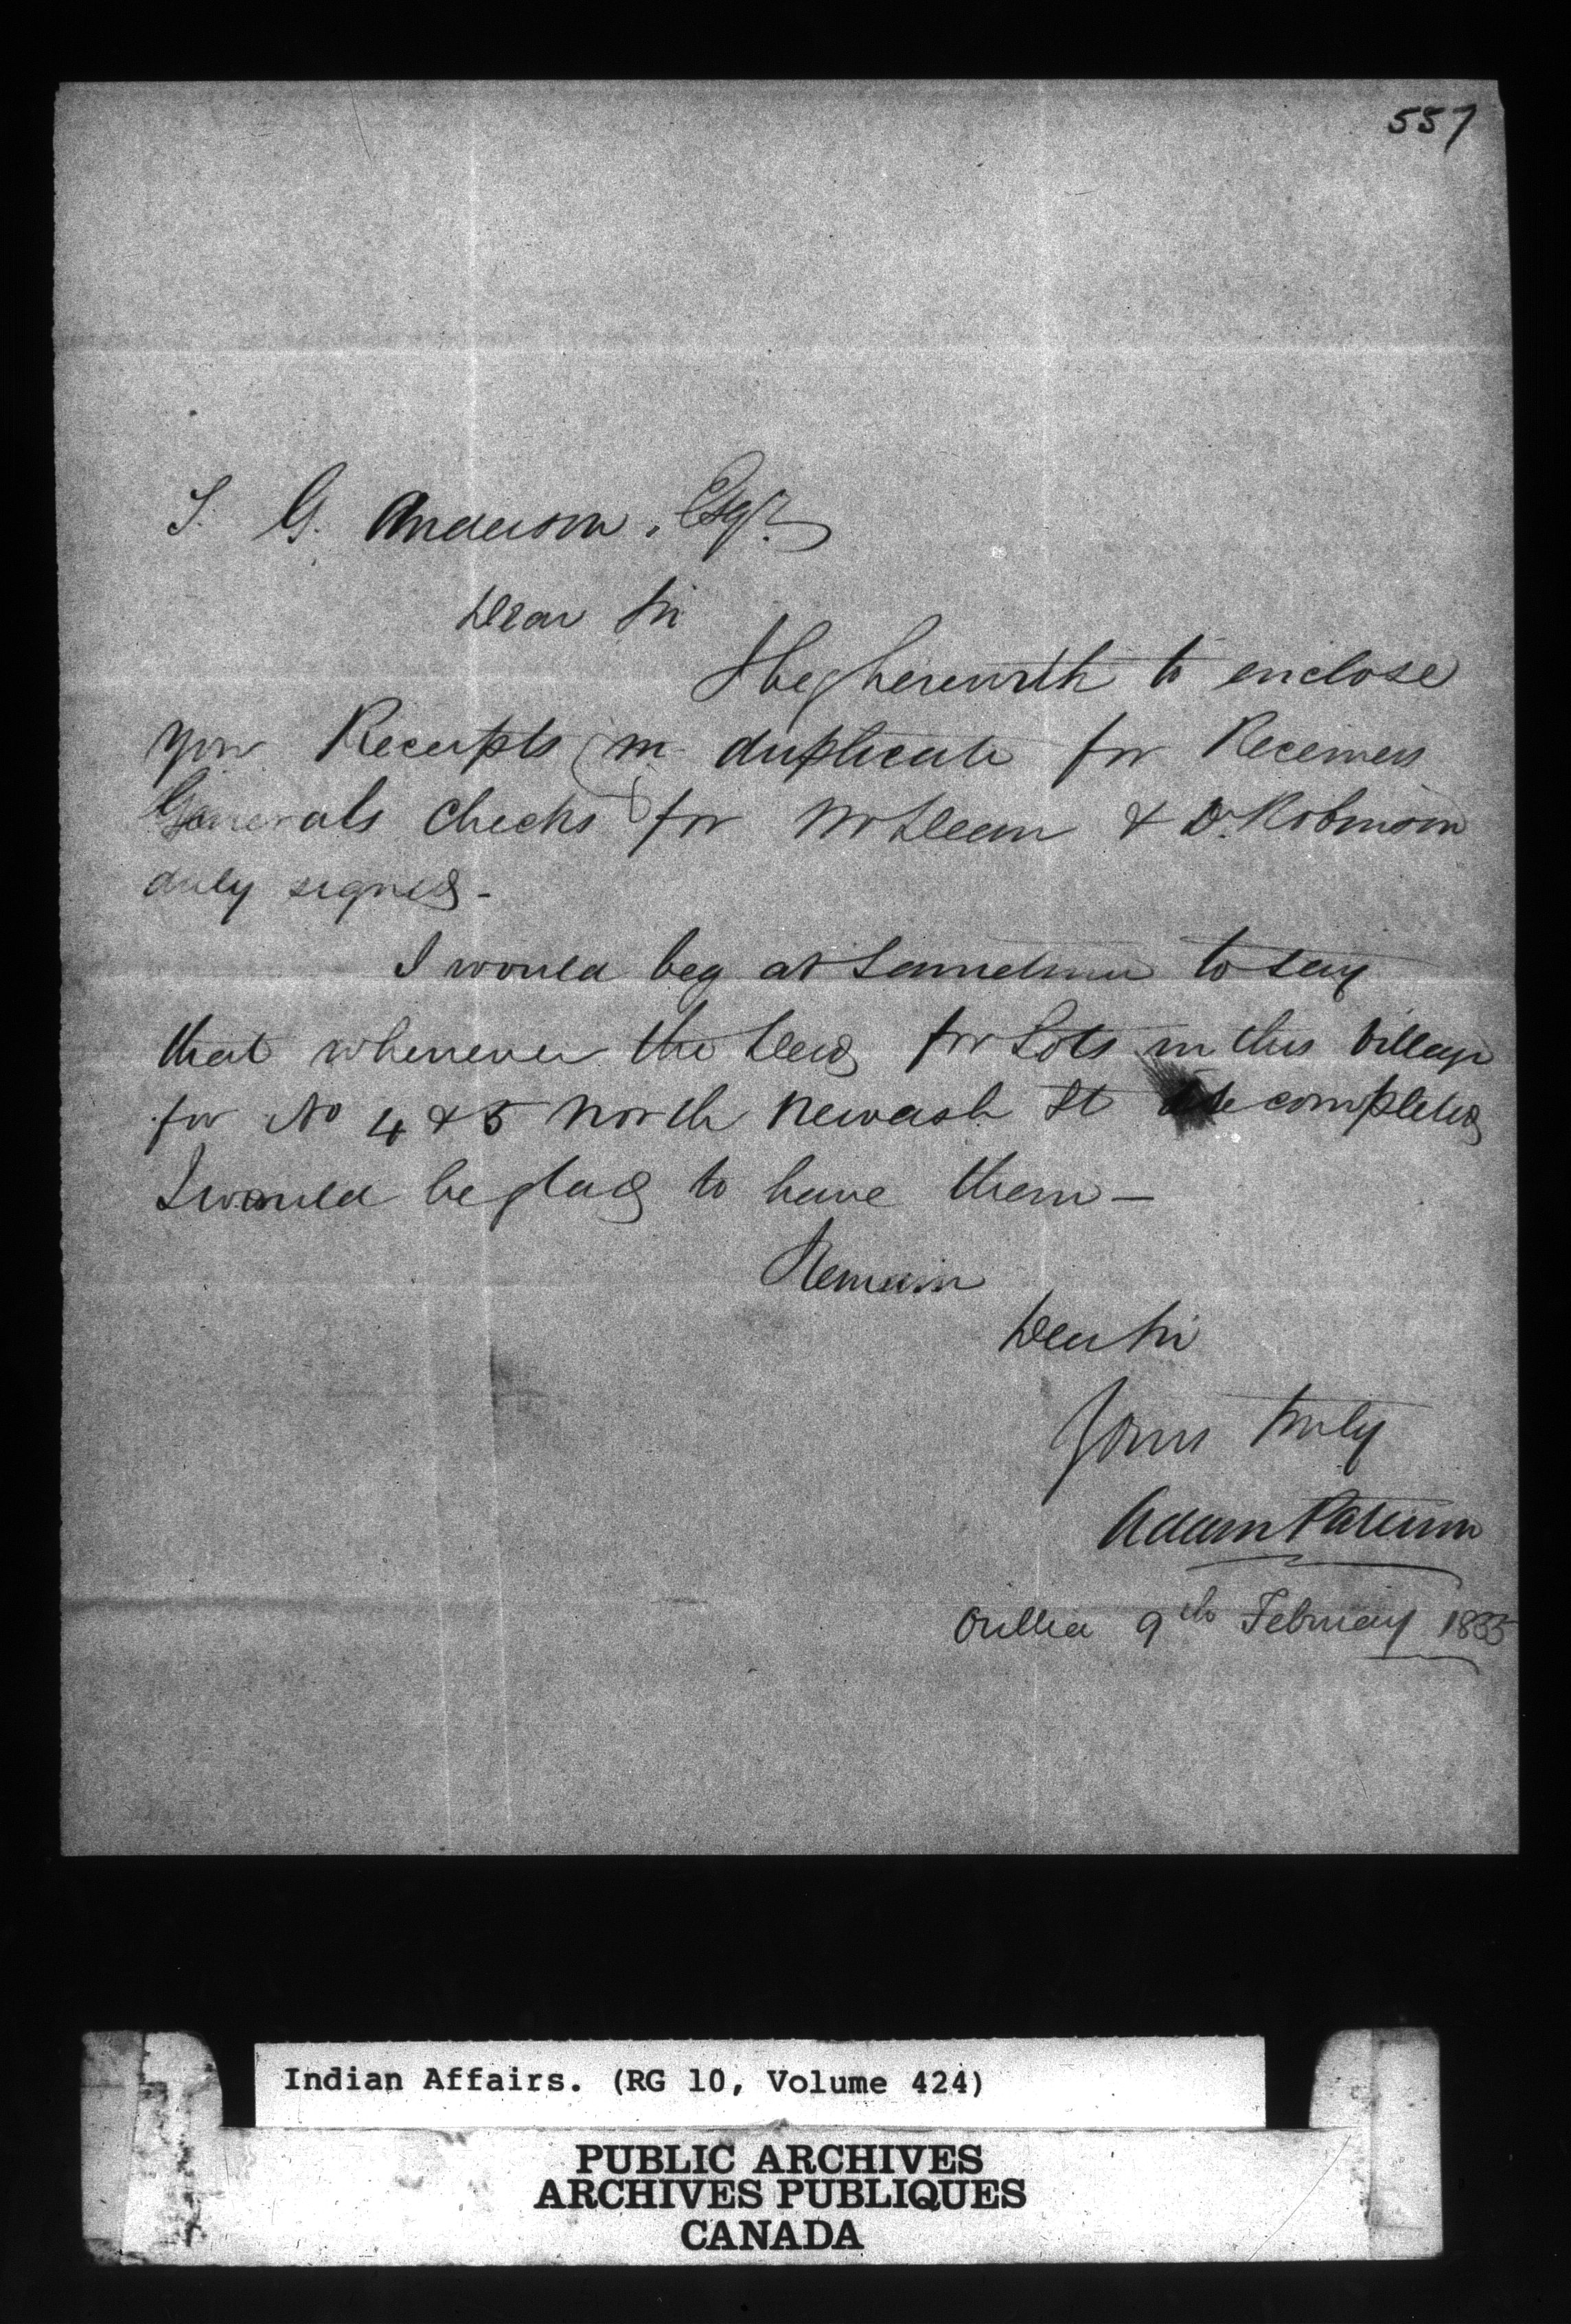 557
T. G. Anderson, Esqr.
Dear Sir
I beg herewith to enclose
you Receipts (in duplicate for Receivers
Generals checks) for Mr Dean & Dr. Robinson
duly signed -
I would beg at sametime to say
that whenever the Deeds for Lots in this Village
for No 4 & 5 North Newash St are completed
I would be glad to have them —
I Remain
Dear Sir
Yours truly
Adam Paterson
Orillia 9th February
Indian Affairs. (RG 10, Volume 424)
PUBLIC ARCHIVES
ARCHIVES PUBLIQUES
CANADA